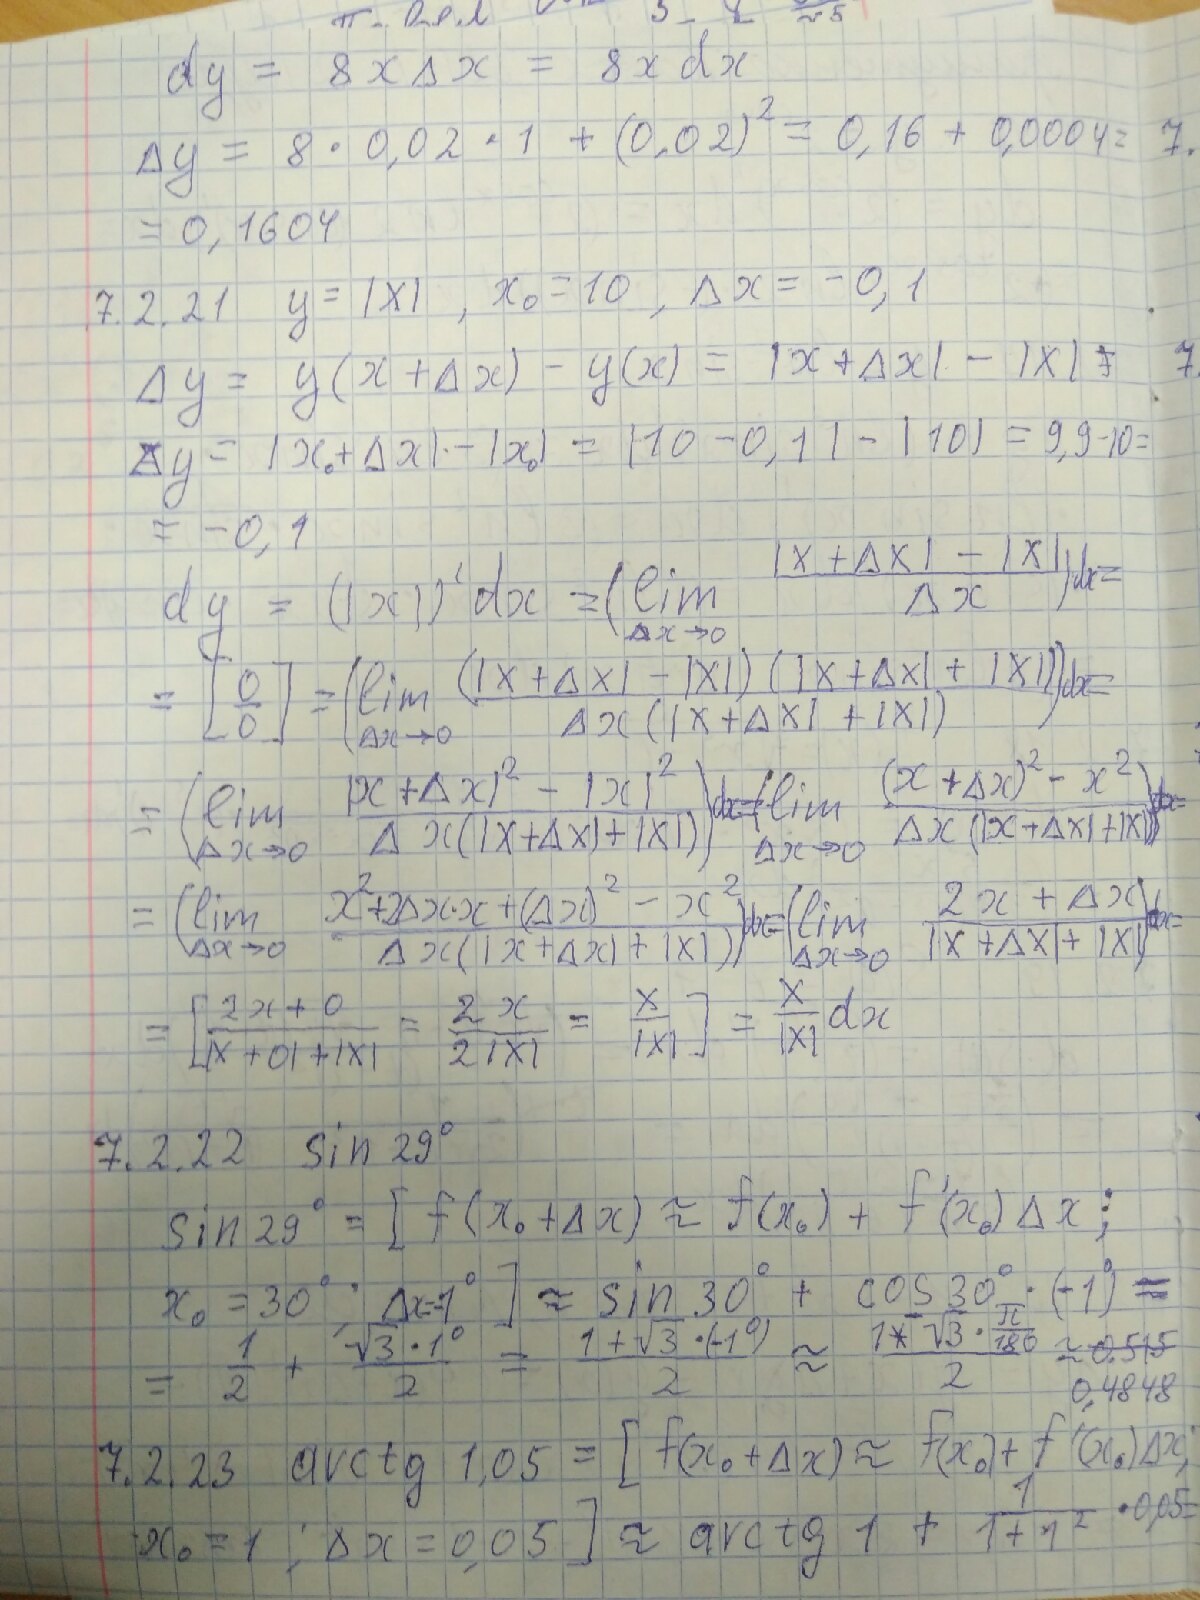 dy = 8xΔx = 8x dx
Δy = 8·0,02·1 + (0,02)² = 0,16 + 0,0004 = 7.
= 0,1604
7.2.21 y = |x|, x₀ = 10, Δx = -0,1
Δy = y(x+Δx) - y(x) = |x+Δx| - |x| = 7.
Δy = |x₀+Δx| - |x₀| = |10 - 0,1| - |10| = 9,9-10 =
= -0,1
dy = (|x|)' dx = (lim_{Δx→0} (|x+Δx| - |x|)/Δx) dx =
= [0/0] = (lim_{Δx→0} ((|x+Δx| - |x|)(|x+Δx| + |x|))/(Δx(|x+Δx| + |x|))) dx =
= (lim_{Δx→0} (|x+Δx|² - |x|²)/(Δx(|x+Δx|+|x|))) dx = (lim_{Δx→0} ((x+Δx)² - x²)/(Δx(|x+Δx|+|x|))) dx =
= (lim_{Δx→0} (x²+2Δx·x+(Δx)² - x²)/(Δx(|x+Δx|+|x|))) dx = (lim_{Δx→0} (2x+Δx)/(|x+Δx|+|x|)) dx =
= [(2x+0)/(|x+0|+|x|) = 2x/2|x| = x/|x|] = x/|x| dx
7.2.22 sin 29°
sin 29° = [f(x₀+Δx) ≈ f(x₀) + f'(x₀)Δx;
x₀ = 30°; Δx=-1°] ≈ sin 30° + cos 30°·(-1°) =
= 1/2 + (√3·1°)/2 = (1+√3·(-1°))/2 ≈ (1-√3·π/180)/2 ≈ 0.515
0,4848
7.2.23 arctg 1,05 = [f(x₀+Δx) ≈ f(x₀) + f'(x₀)Δx;
x₀ = 1; Δx = 0,05] ≈ arctg 1 + 1/(1+1²)·0,05=